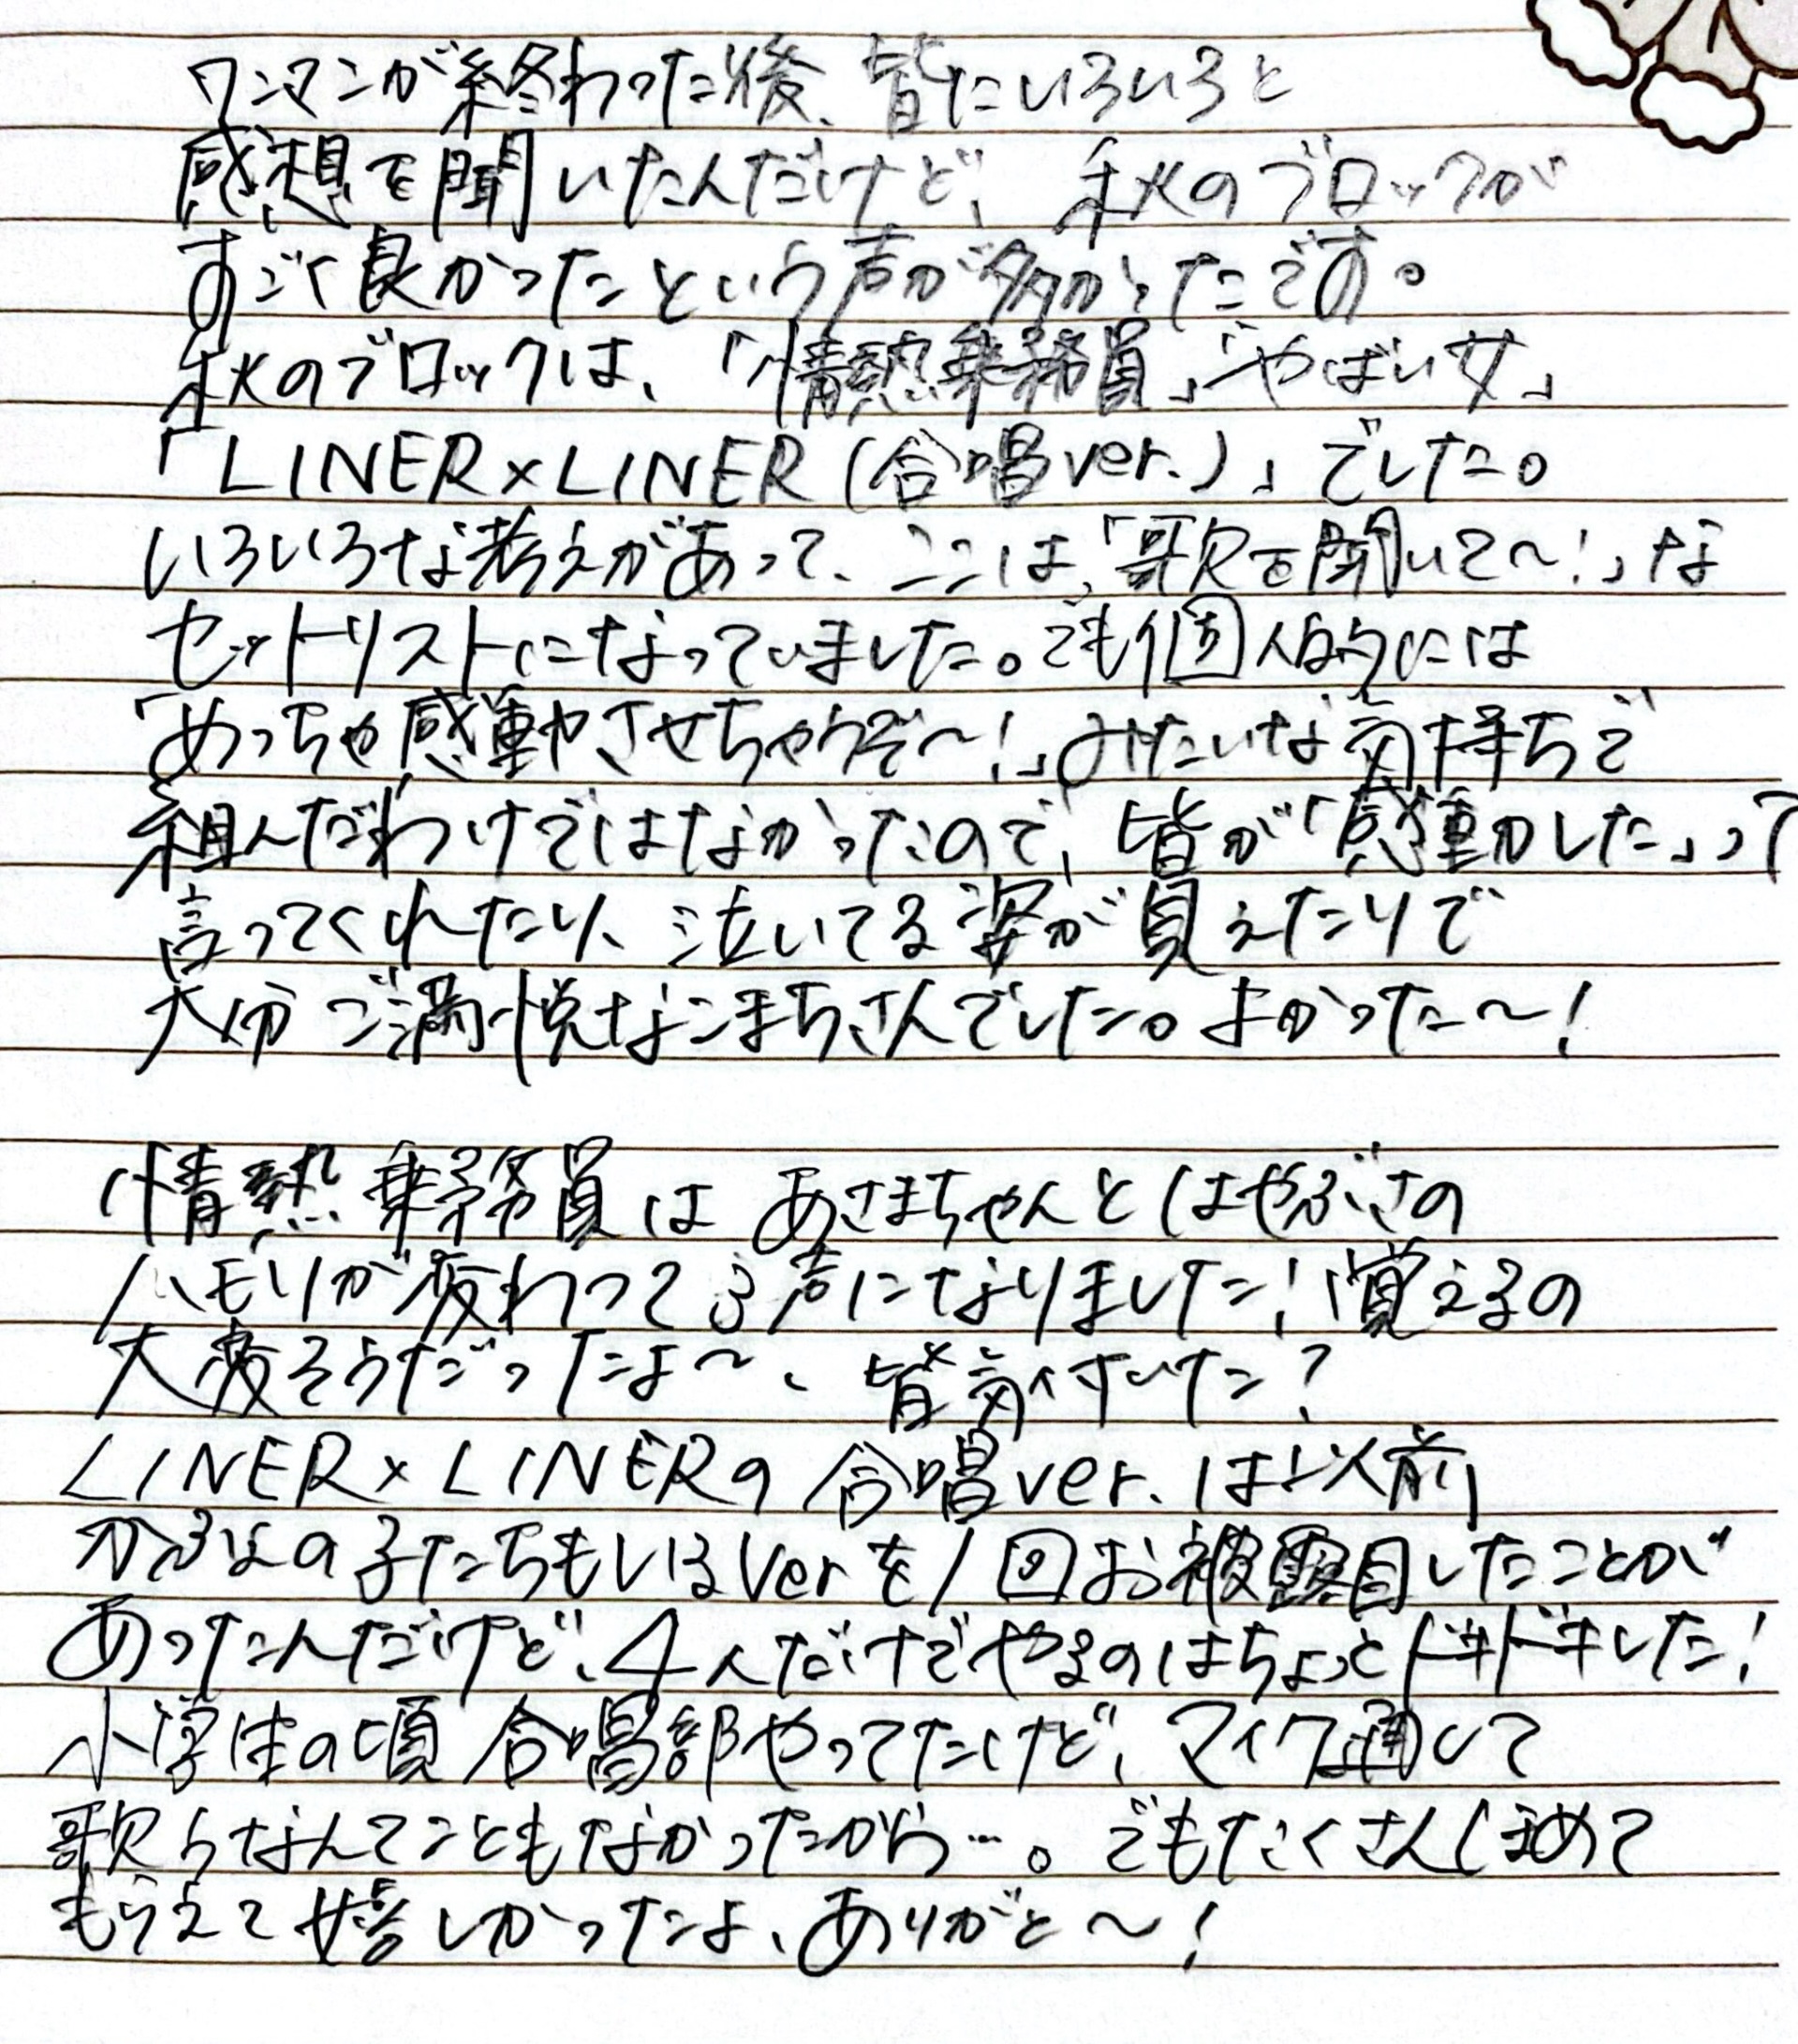 ワンマンが終わった後、皆にいろいろと
感想を聞いたんだけど、秋のブロックが
すごく良かったという声が多かったです。
秋のブロックは、「情熱乗務員」「やばい女」
「LINER×LINER(合唱ver.)」でした。
いろいろな考えがあって、ここは、「歌を聞いて～!」な
セットリストになっていました。でも個人的には
「めっちゃ感動させちゃうぞ～!」みたいな気持ちで
組んだわけではなかったので、皆が「感動した」って
言ってくれたり、泣いてる姿が見えたりで
大分ご満悦なこまちさんでした。よかった～!
情熱乗務員はあさまちゃんとはやぶさの
ハモリが変わって3声になりました!覚えるの
大変そうだったよ～、皆気付いた?
LINER×LINERの合唱ver.は以前
かぷよの子たちもいるVerを1回お披露目したことが
あったんだけど、4人だけでやるのはちょっとドキドキした!
小学生の頃合唱部やってたけど、マイク通して
歌うなんてこともなかったから…。でもたくさんほめて
もらえて嬉しかったよ、ありがと～!